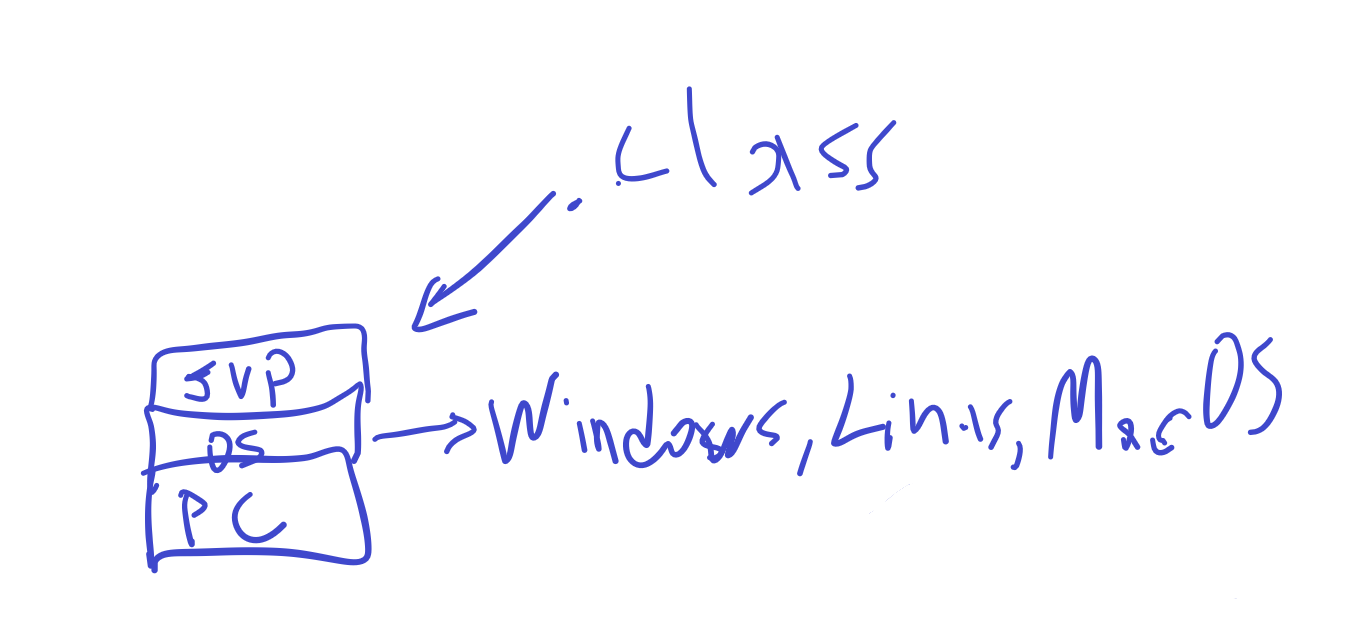 .class
JVP
OS
Windows, Linux, MacOS
PC